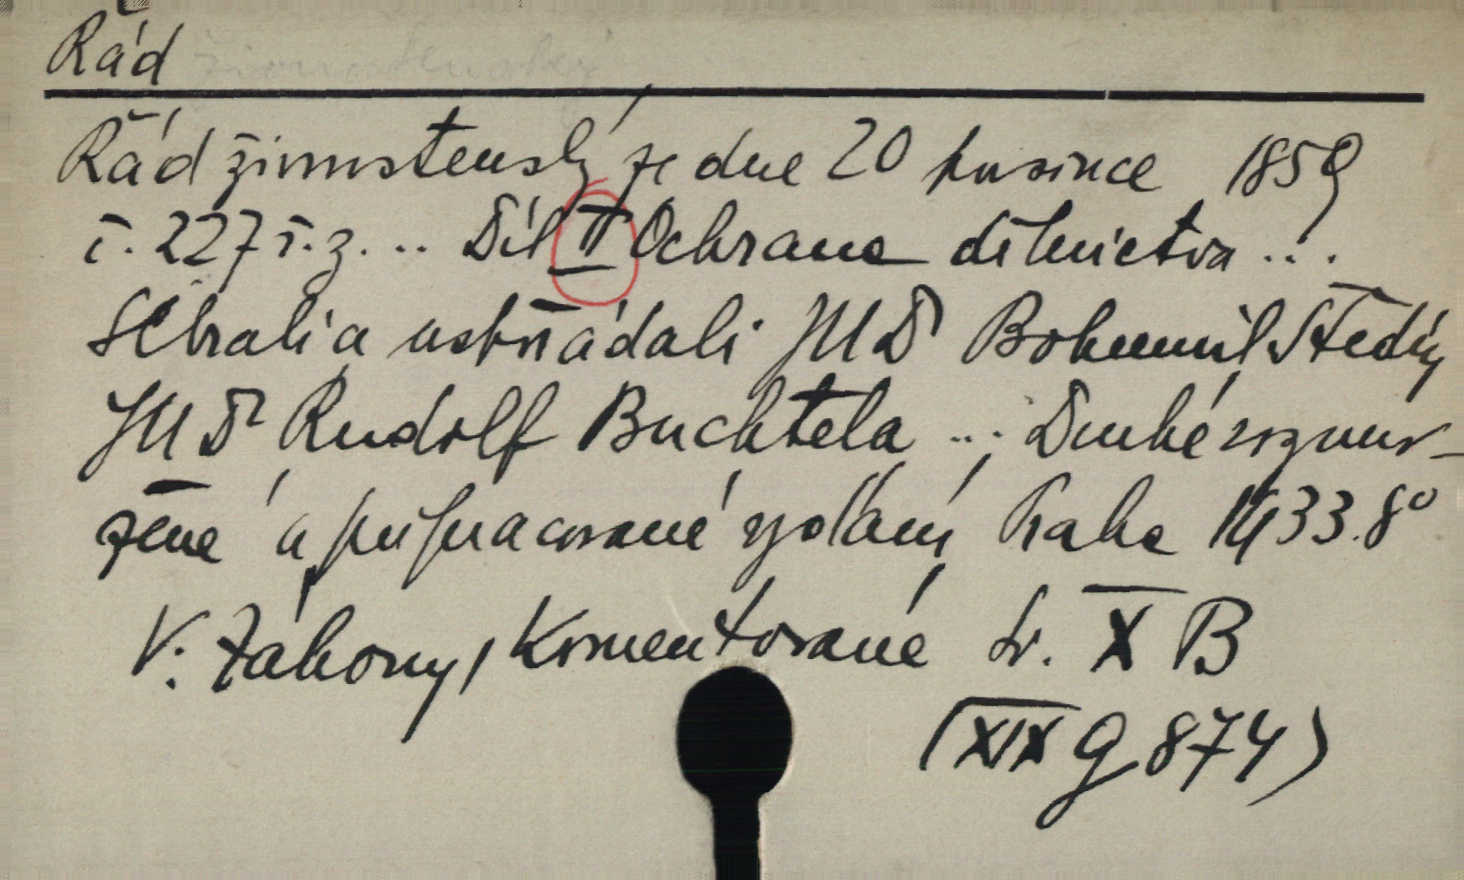 Řád živnostenský
Řád živnostenský ze dne 20 prosince 1859
č. 227 ř. z. ... Díl II Ochrana dělnictva ...
Sebrali a uspořádali JUDr Bohumil Štědrý
JUDr Rudolf Buchtela ... Druhé rozmno-
žené a přepracované vydání Praha 1933. 8°
V: Zákony, Komentované Sv. X B
(XIX G 874)